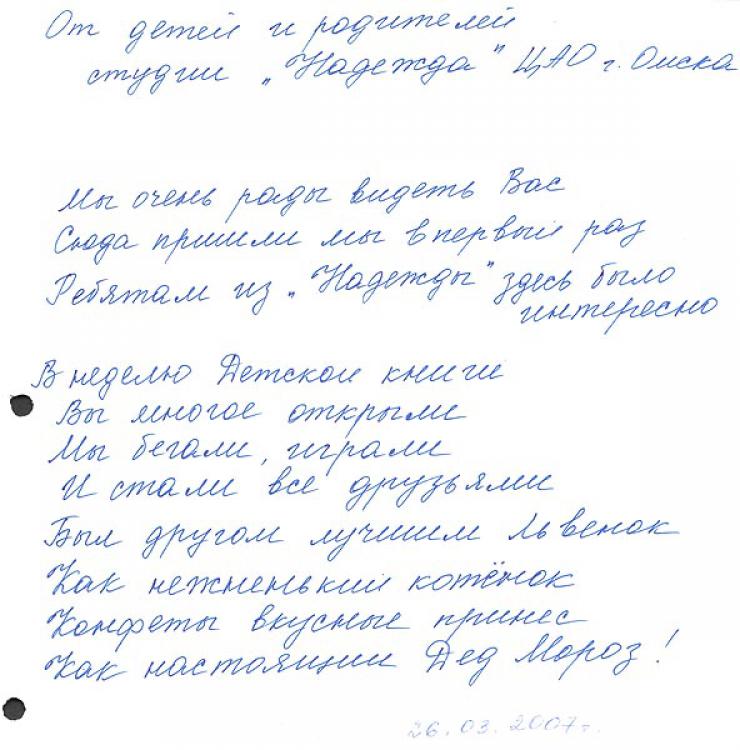 От детей и родителей
студии „Надежда" ЦАО г. Омска
Мы очень рады видеть Вас
Сюда пришли мы в первый раз
Ребятам из „Надежды" здесь было
интересно
В неделю Детской книги
Вы многое открыли
Мы бегали, играли
И стали все друзьями
Был другом лучшим Львенок
Как нежненький котёнок
Конфеты вкусные принес
Как настоящий Дед Мороз!
26.03.2007г.